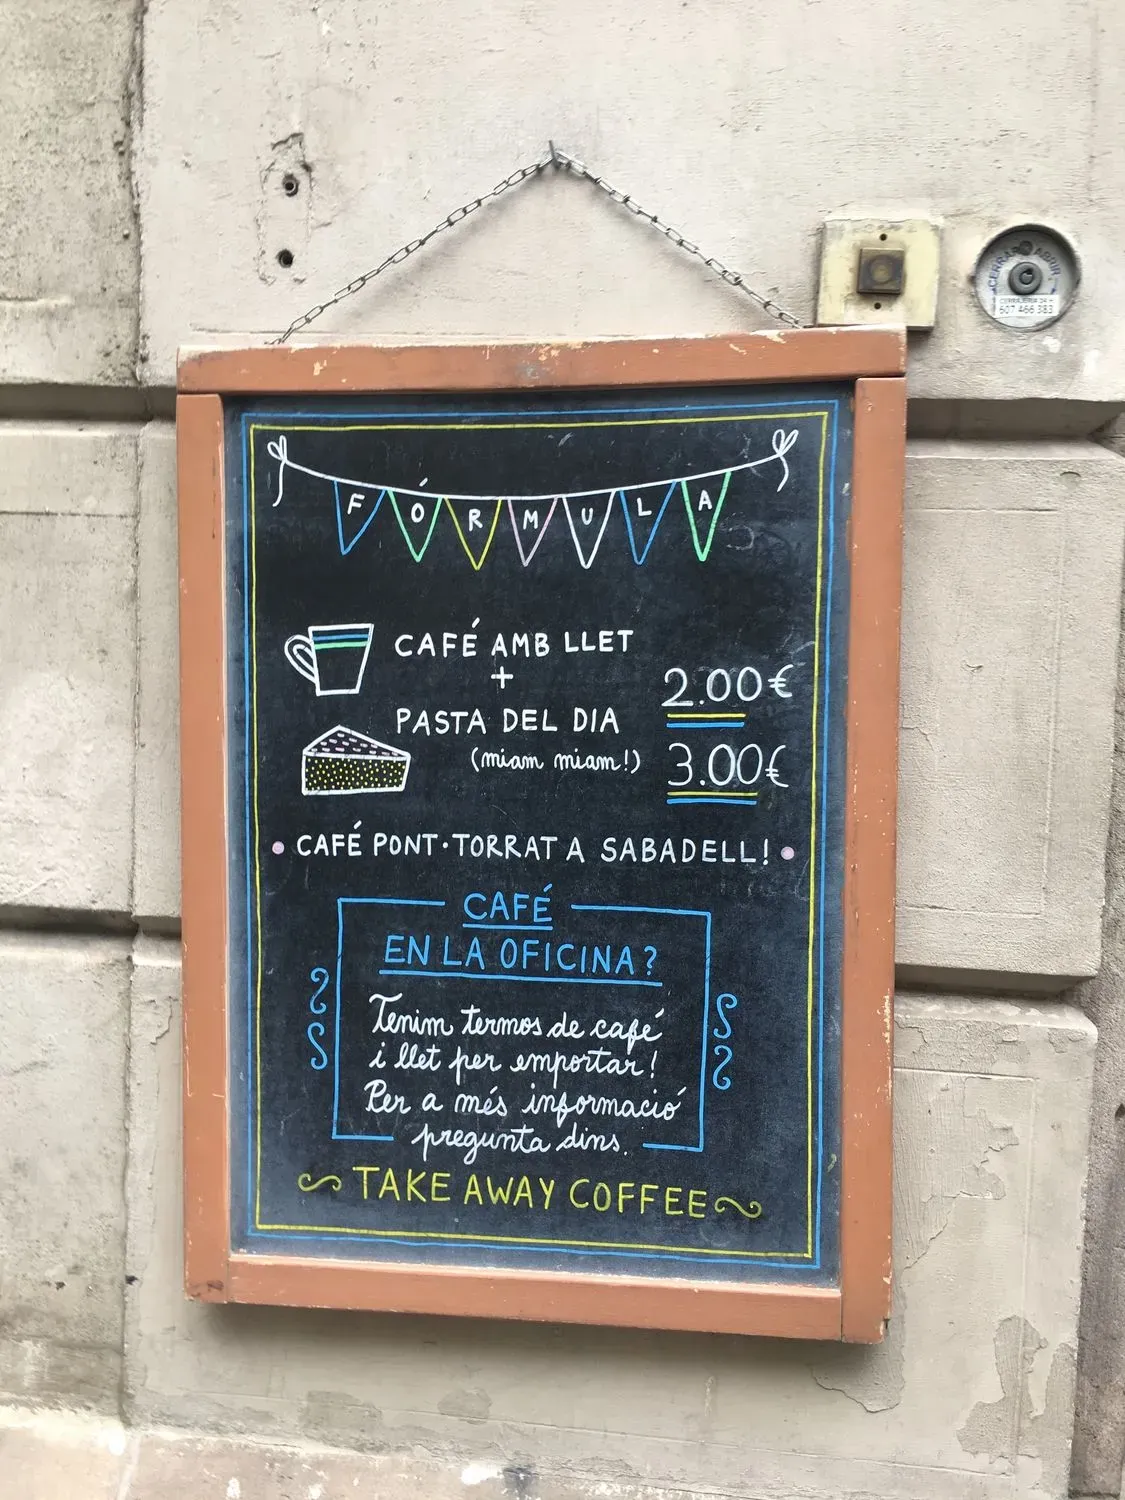 CERRAR ABRIR
CERRAJERIA 24 H
607 466 383
FÓRMULA
CAFÉ AMB LLET
+
2.00€
PASTA DEL DIA
(miam miam!)
3.00€
• CAFÉ PONT·TORRAT A SABADELL! •
CAFÉ
EN LA OFICINA?
Tenim termos de café
i llet per emportar!
Per a més informació
pregunta dins.
TAKE AWAY COFFEE